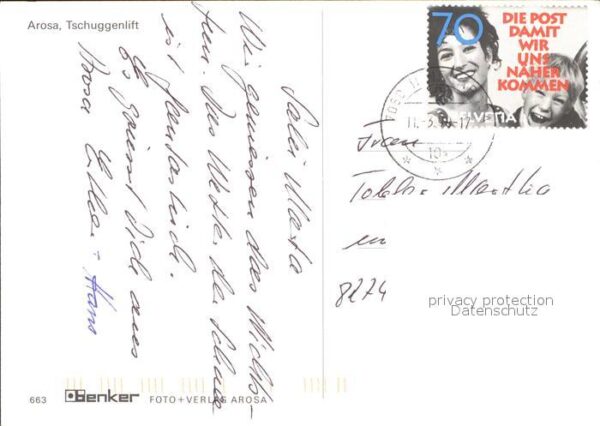 Arosa, Tschuggenlift
Salü Marta
Wir geniessen das Nichts-
tun. Das Wetter, der Schnee
ist fantastisch.
Es grüsst Dich aus
Arosa Esther + Hans
663 Benker FOTO+VERLAG AROSA
70
DIE POST
DAMIT
WIR
UNS
NÄHER
KOMMEN
HELVETIA
Frau
Martha
8274
privacy protection
Datenschutz